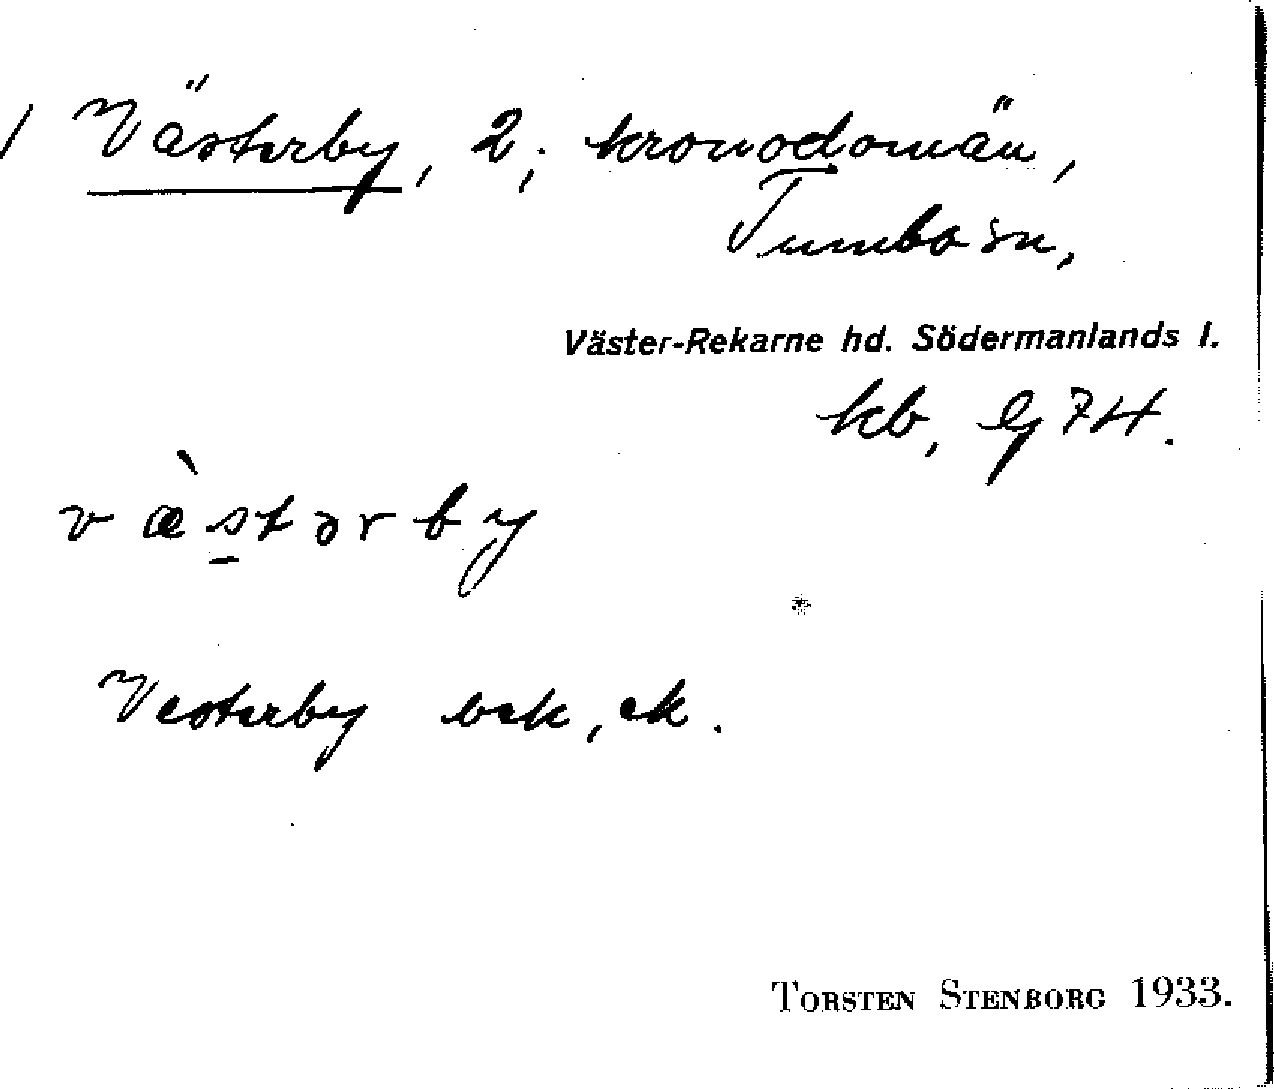 / Västerby, 2; kronodomän,
Tumbo sn,
Väster-Rekarne hd. Södermanlands l.
kb, G 74.
væ̀stərby
Vesterby bek, ek.
TORSTEN STENBORG 1933.